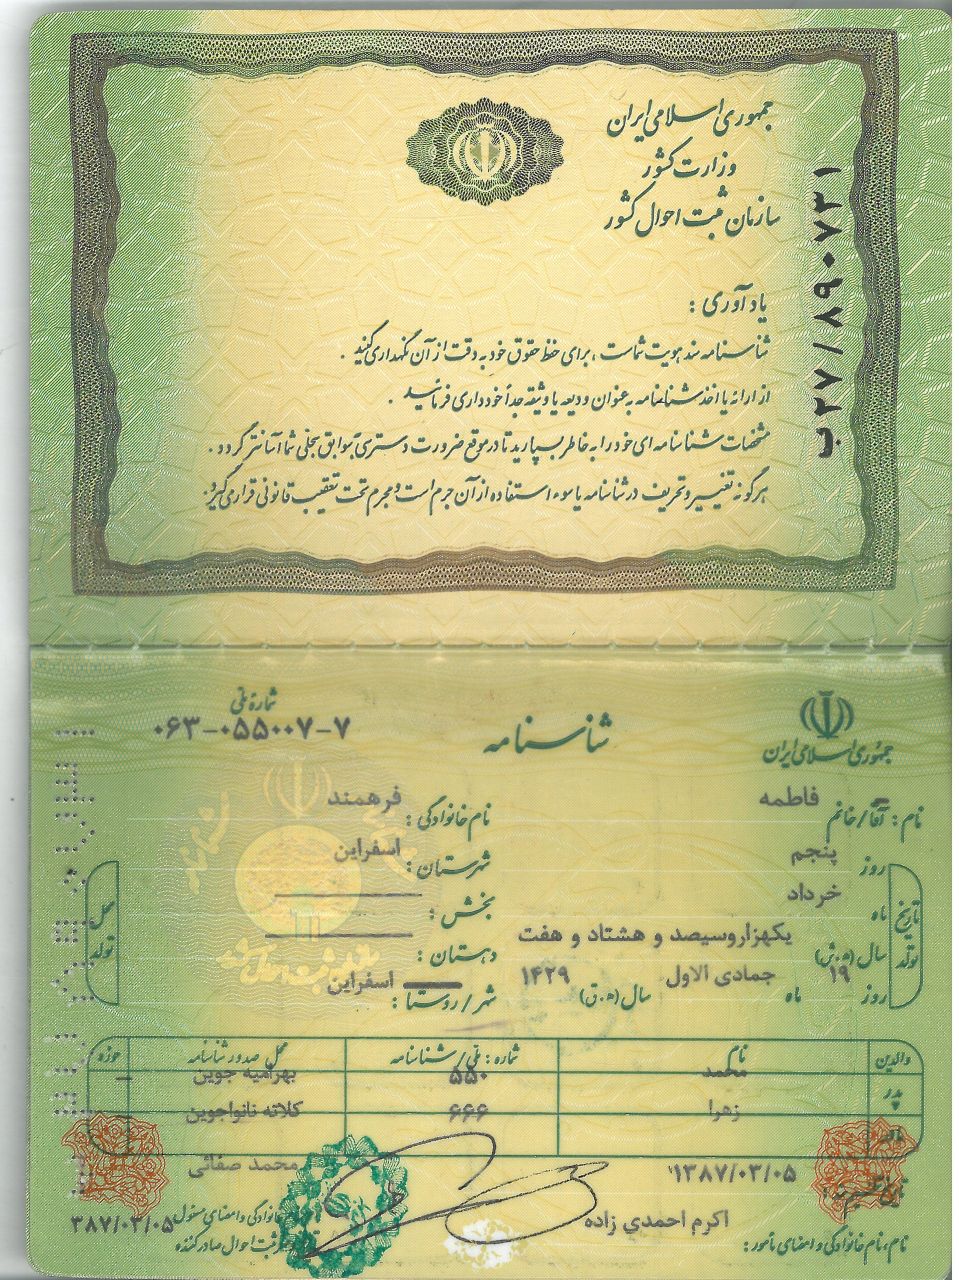 جمهوری اسلامی ایران
وزارت کشور
سازمان ثبت احوال کشور
ب۲۷/۸۹۰۷۳۱
یادآوری :
شناسنامه سند هویت شماست ، برای حفظ حقوق خود به دقت از آن نگهداری کنید .
از ارائه یا اخذ شناسنامه به عنوان ودیعه یا وثیقه جداً خودداری فرمائید .
مشخصات شناسنامه ای خود را به خاطر بسپارید تا در موقع ضرورت دسترسی به سوابق سجلی شما آسانتر گردد .
هرگونه تغییر و تحریف در شناسنامه یا سوء استفاده از آن جرم است و مجرم تحت تعقیب قانونی قرار می گیرد .
جمهوری اسلامی ایران
شناسنامه
شماره ملی
۰۶۳-۰۵۵۰۰۷-۷
نام : آقا/خانم فاطمه
نام خانوادگی : فرهمند
تاریخ تولد
روز پنجم
ماه خرداد
سال (ه.ش) یکهزاروسیصد و هشتاد و هفت
روز ۱۹ ماه جمادی الاول سال (ه.ق) ۱۴۲۹
محل تولد
شهرستان : اسفراین
بخش :
دهستان :
شهر/روستا : اسفراین
والدین نام شماره : ملی/شناسنامه محل صدور شناسنامه حوزه
پدر محمد ۵۵۰ بهرامیه جوین –
مادر زهرا ۶۶۶ کلاته نانواجوین
تاریخ تنظیم سند : ۱۳۸۷/۰۳/۰۵
نام، نام خانوادگی و امضای مأمور : اکرم احمدي زاده
محمد صفائی
خانوادگی و امضای مسئول
ثبت احوال صادرکننده
۳۸۷/۰۳/۰۵